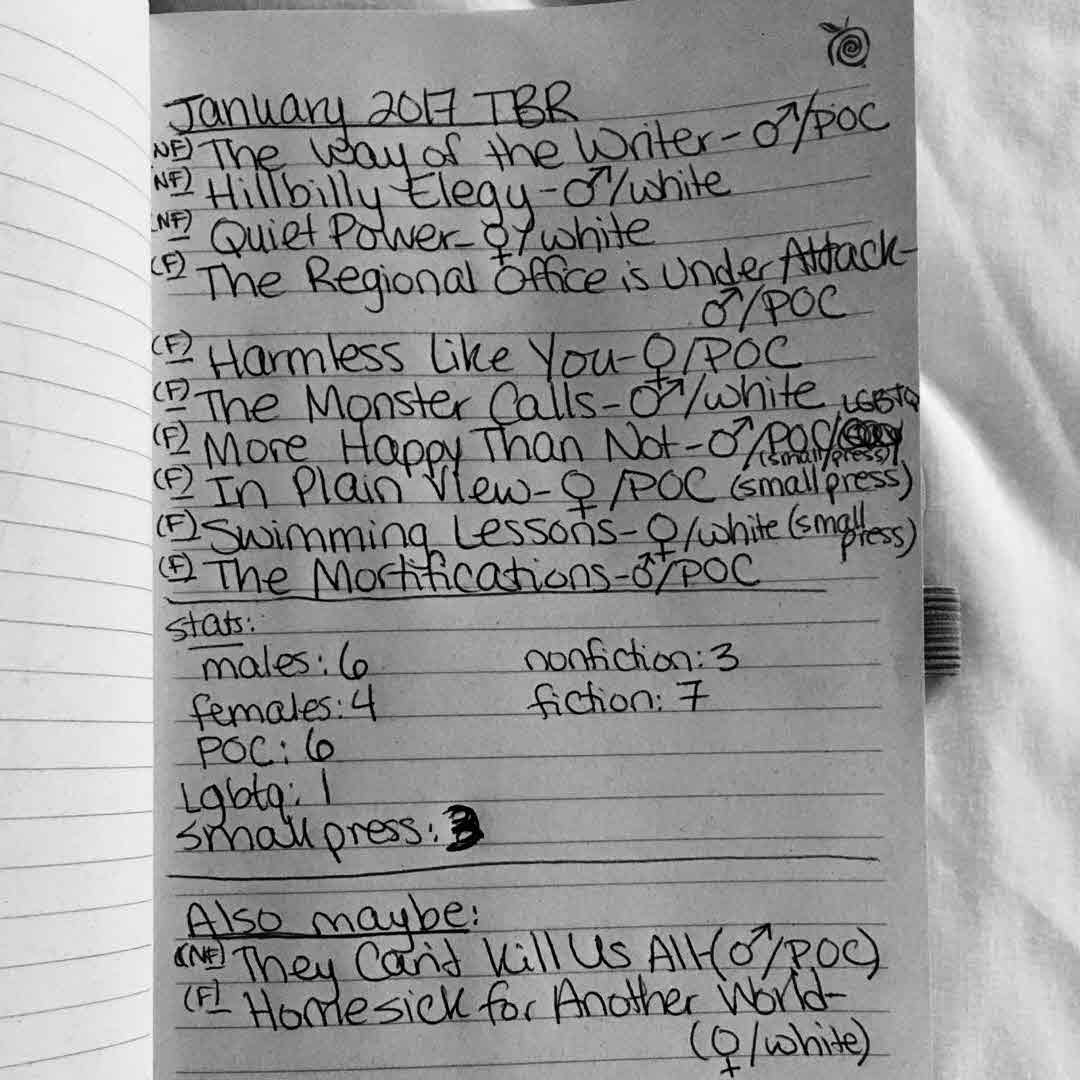 January 2017 TBR
(NF) The Way of the Writer - ♂/POC
(NF) Hillbilly Elegy - ♂/white
(NF) Quiet Power - ♀/white
(F) The Regional Office is Under Attack -
♂/POC
(F) Harmless Like You - ♀/POC
(F) The Monster Calls - ♂/white
LGBTQ
(F) More Happy Than Not - ♂/POC/
(small press)
(F) In Plain View - ♀/POC (small press)
(F) Swimming Lessons - ♀/white (small
press)
(F) The Mortifications - ♂/POC
stats:
males: 6 nonfiction: 3
females: 4 fiction: 7
POC: 6
Lgbtq: 1
Small press: 3
Also maybe:
(NF) They Can't Kill Us All - (♂/POC)
(F) Homesick for Another World -
(♀/white)